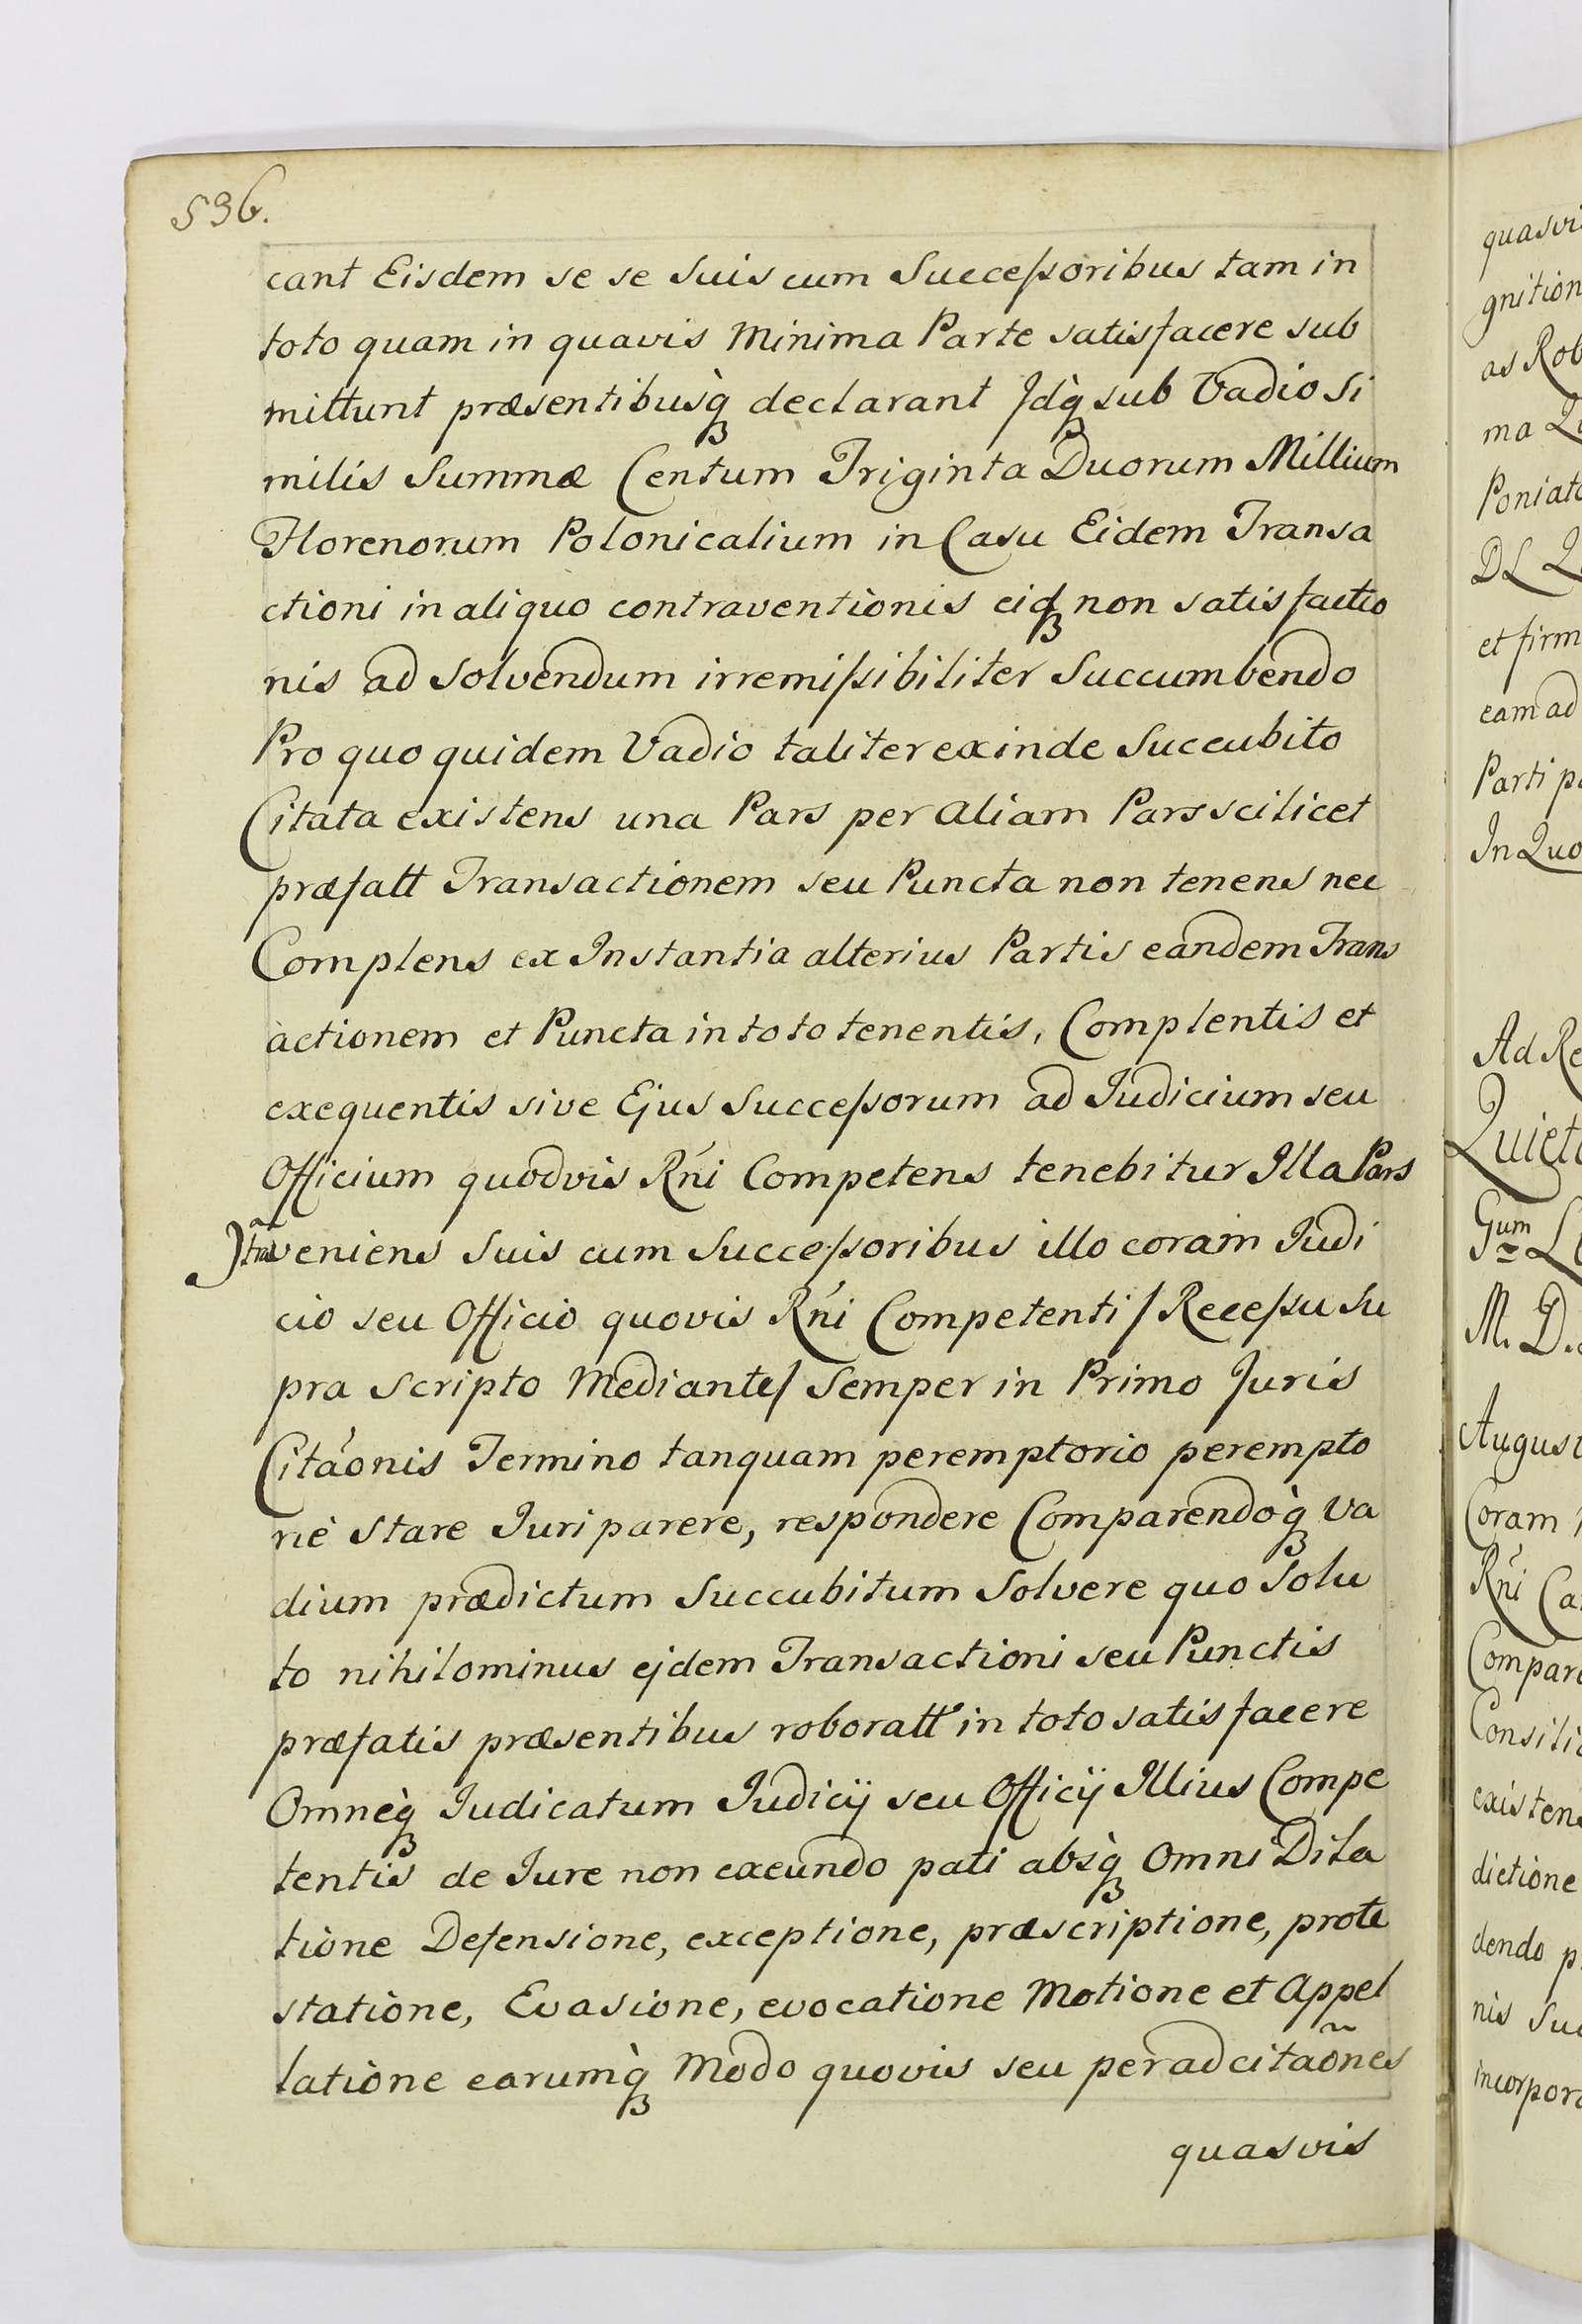 536.
cant Eisdem se se suis cum Successoribus tam in
toto quam in quavis Minima Parte satisfacere sub
mittunt præsentibusq̀ꝫ declarant Jdq̀ꝫ sub Vadio Si
milis Summæ Centum Triginta Duorum Millium
Florenorum Polonicalium in Casu Eidem Transa
ctioni in aliquo contraventionis eiqꝫ non satisfactio
nis ad solvendum irremissibiliter Succumbendo
Pro quo quidem Vadio taliter exinde Succubito
Citata existens una Pars per aliam Pars scilicet
præfatt Transactionem seu Puncta non tenens nec
Complens ex Instantia alterius Partis eandem Trans
actionem et Puncta in toto tenentis, Complentis et
exequentis sive Ejus Successorum ad Iudicium seu
Officium quodvis Rńi Competens tenebitur Illa Pars
veniens suis cum Successoribus illo coram Iudi
cio seu Officio quovis Rńi Competenti / Recessu Su
pra scripto Mediante / Semper in Primo Juris
Citáonis Termino tanquam peremptorio perempto
riè stare Iuri parere, respondere Comparendoq̀ꝫ Va
dium prædictum Succubitum Solvere quo Solu
to nihilominus ejdem Transactioni seu Punctis
præfatis præsentibus roboratt in toto satisfacere
Omneq̀ꝫ Iudicatum Iudicij seu Officij Illius Compe
tentis de Iure non exeundo pati absq̀ꝫ Omni Dila
tione Defensione, exceptione, præscriptione, prote
statione, Evasione, evocatione Motione et Appel
latione earumq̀ꝫ Modo quovis seu per adcitaõnes
quasvis
quasvi
gnition
as Rob
ma
Poniato
DL
et firm
eam ad
Parti
In Quo
Ad Re
Quiet
Gum
M. D.
August
Coram
Rńi Ca
Compar
Consili
existen
dictione
dendo p
nis Suc
incorpor